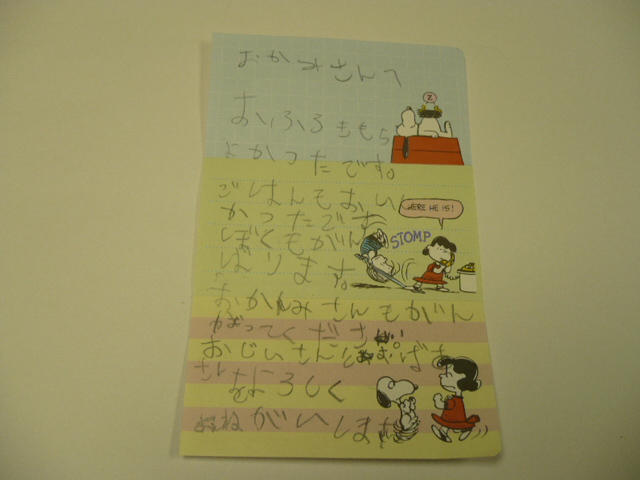 おかみさんへ
おふろきもち
よかったです。
ごはんもおいし
かったです
HERE HE IS!
ぼくもがん
STOMP
ばります。
おかみさんもがん
ばってください
おじいさんとおばあ
さんをよろしく
おねがいします
Z